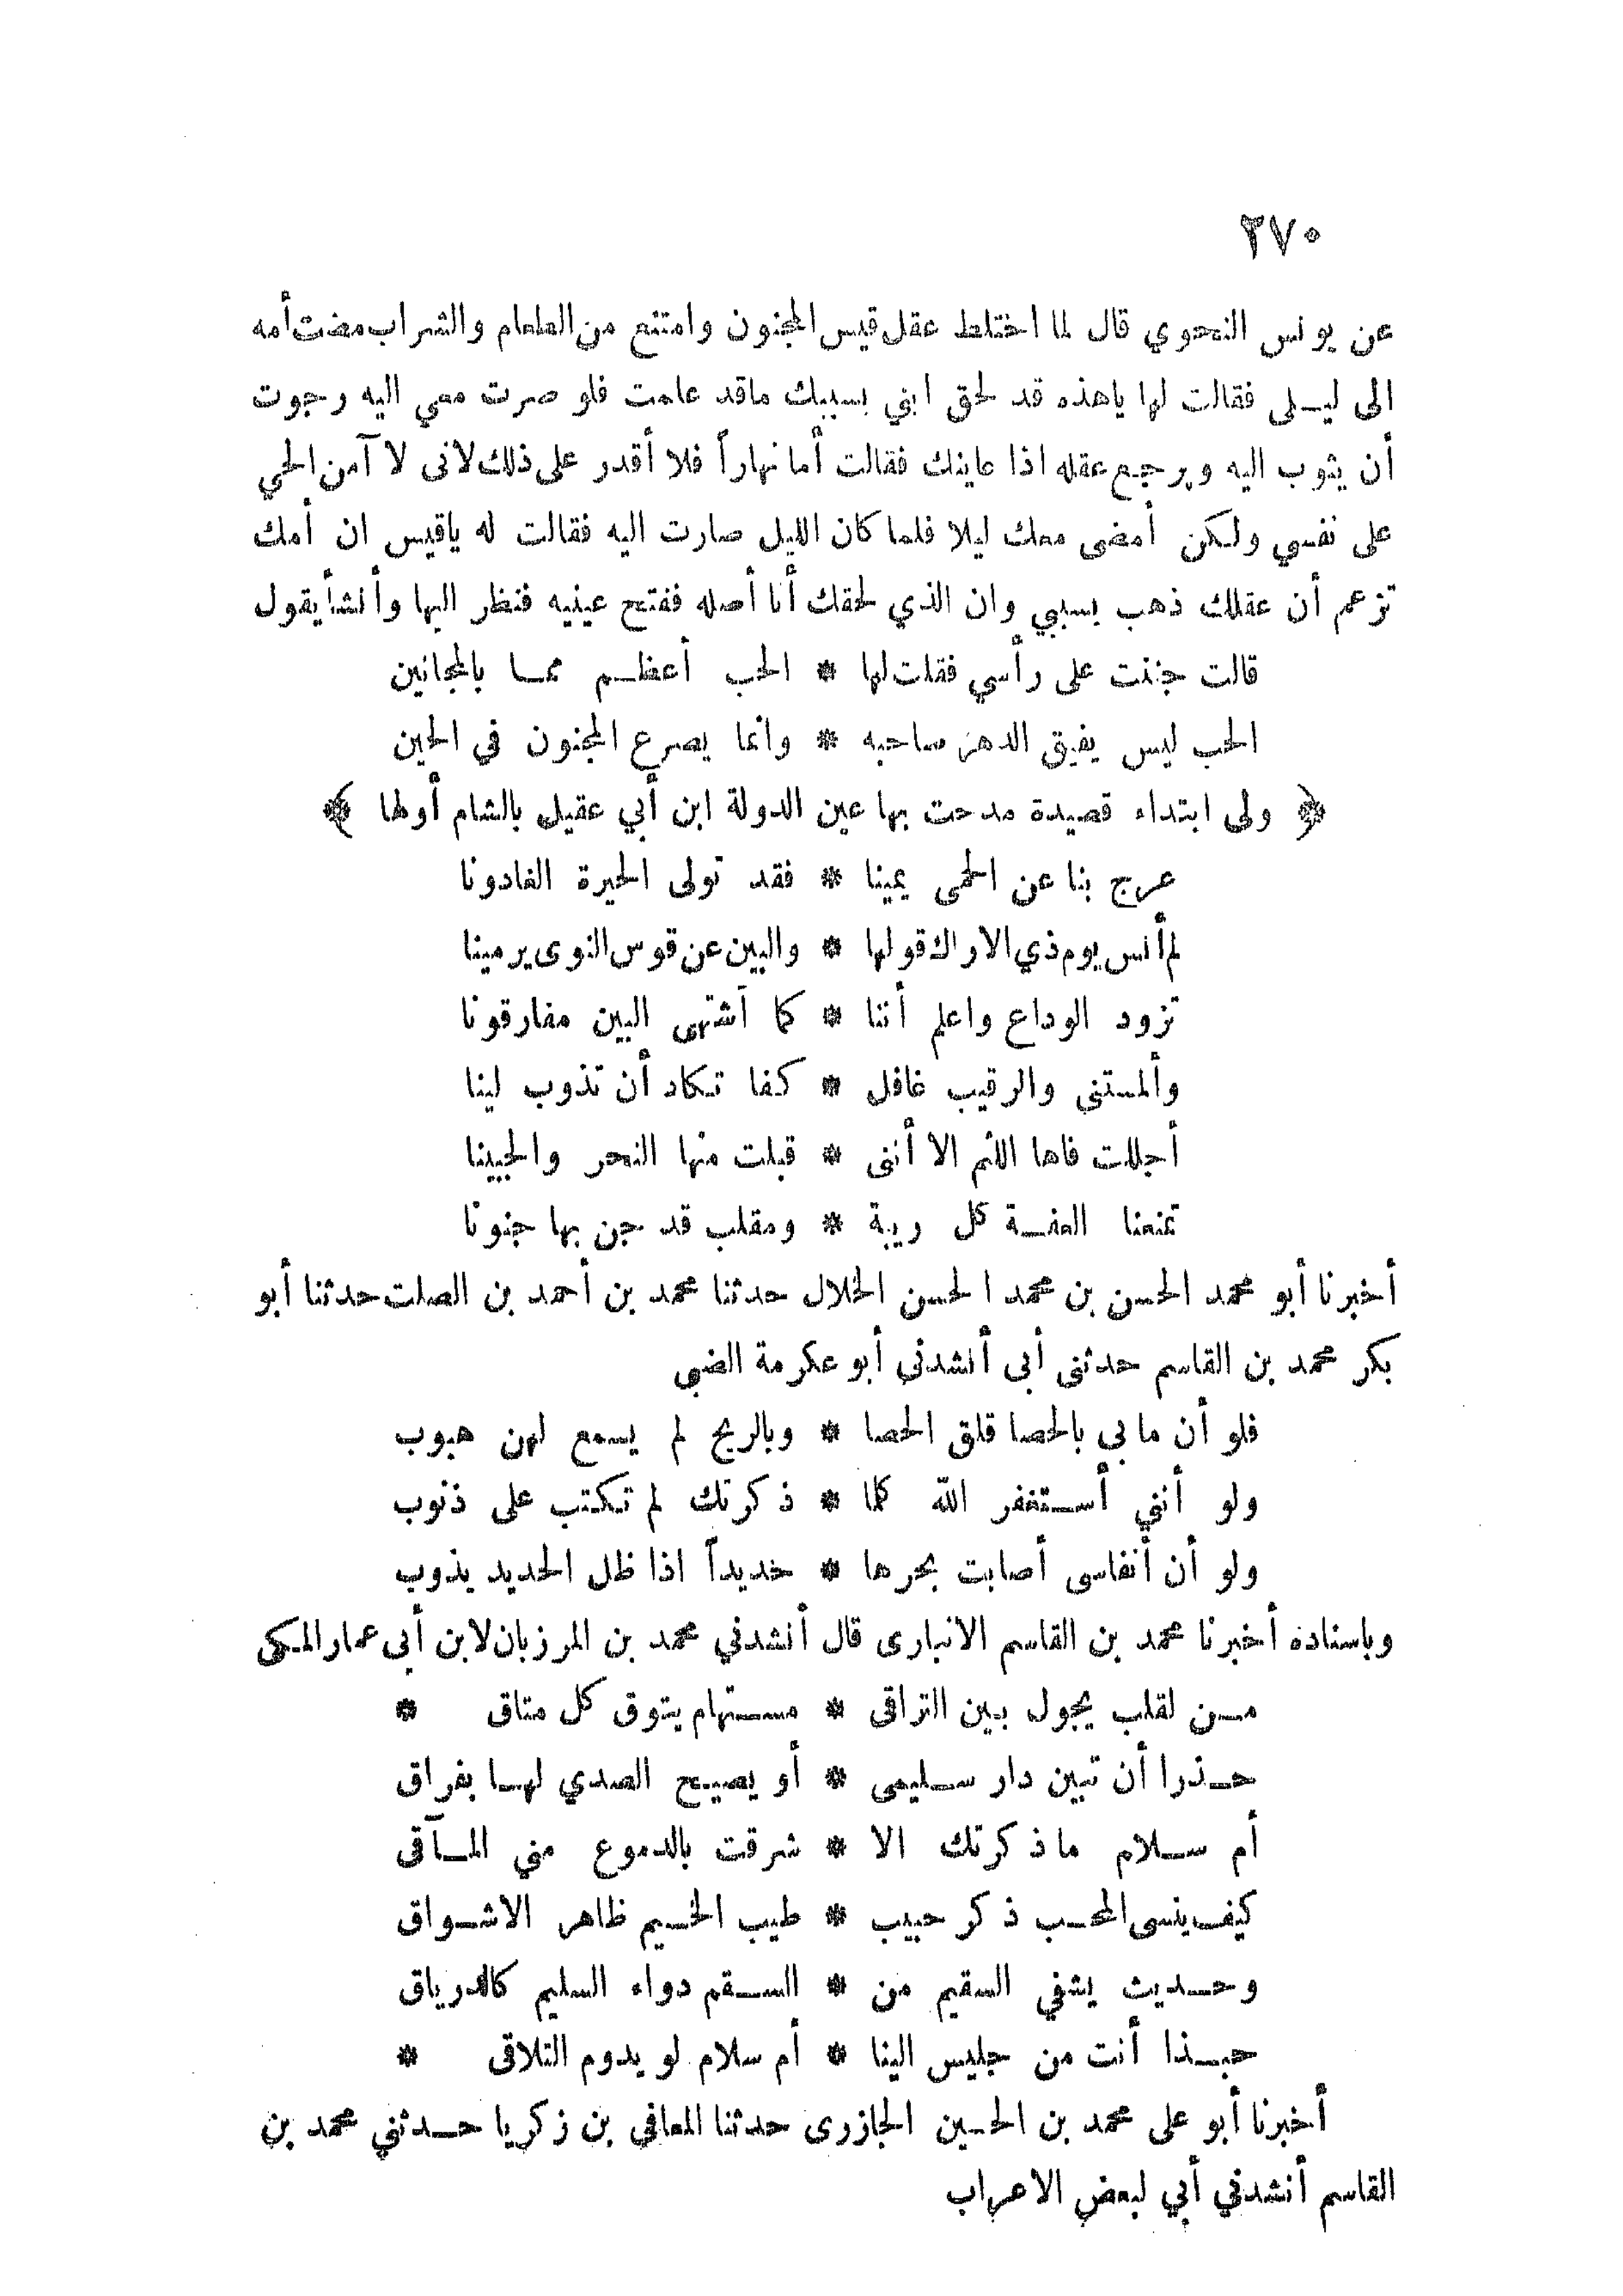 ٢٧٠
عن يونس النحوي قال لما اختلط عقل قيس المجنون وامتنع من الطعام والشراب مضت أمه
الى ليلى فقالت لها ياهذه قد لحق ابني بسببك ماقد علمت فلو صرت معي اليه رجوت
أن يثوب اليه ويرجع عقله اذا عاينك فقالت أما نهاراً فلا أقدر على ذلك لانى لا آمن الحي
على نفسي ولكن أمضى معك ليلا فلما كان الليل صارت اليه فقالت له ياقيس ان أمك
تزعم أن عقلك ذهب بسببي وان الذي لحقك أنا أصله ففتح عينيه فنظر اليها وأنشأ يقول
قالت جننت على رأسي فقلت لها * الحب أعظم مما بالمجانين
الحب ليس يفيق الدهر صاحبه * وانما يصرع المجنون في الحين
﴿ ولى ابتداء قصيدة مدحت بها عين الدولة ابن أبي عقيل بالشام أولها ﴾
عرج بنا عن الحمى يمينا * فقد تولى الحيرة الغادونا
لم أنس يوم ذي الاراك قولها * والبين عن قوس النوى يرمينا
تزود الوداع واعلم أننا * كما آشتهى البين مفارقونا
وألمستنى والرقيب غافل * كفا تكاد أن تذوب لينا
أجللت فاها اللثم الا أننى * قبلت منها النحر والجبينا
تمنعنا العفة كل ريبة * ومقلب قد جن بها جنونا
أخبرنا أبو محمد الحسن بن محمد الحسن الخلال حدثنا محمد بن أحمد بن الصلت حدثنا أبو
بكر محمد بن القاسم حدثنى أبى أنشدنى أبو عكرمة الضبى
فلو أن مابي بالحصا قلق الحصا * وبالريح لم يسمع لهن هبوب
ولو أنني أستغفر الله كلما * ذكرتك لم تكتب على ذنوب
ولو أن أنفاسى أصابت بحرها * حديداً اذا ظل الحديد يذوب
وباسناده أخبرنا محمد بن القاسم الانبارى قال أنشدني محمد بن المرزبان لابن أبى عمار المكى
من لقلب يجول بين التراقى * مستهام يتوق كل متاق *
حذرا أن تبين دار سليمى * أو يصيح الصدي لها بفراق
أم سلام ماذكرتك الا * شرقت بالدموع مني المآقى
كيف ينسى المحب ذكر حبيب * طيب الخيم ظاهر الاشواق
وحديث يشفي السقيم من * السقم دواء السليم كالدرياق
حبذا أنت من جليس الينا * أم سلام لو يدوم التلاقى *
أخبرنا أبو على محمد بن الحسين الجازرى حدثنا المعافي بن زكريا حدثني محمد بن
القاسم أنشدني أبي لبعض الاعراب